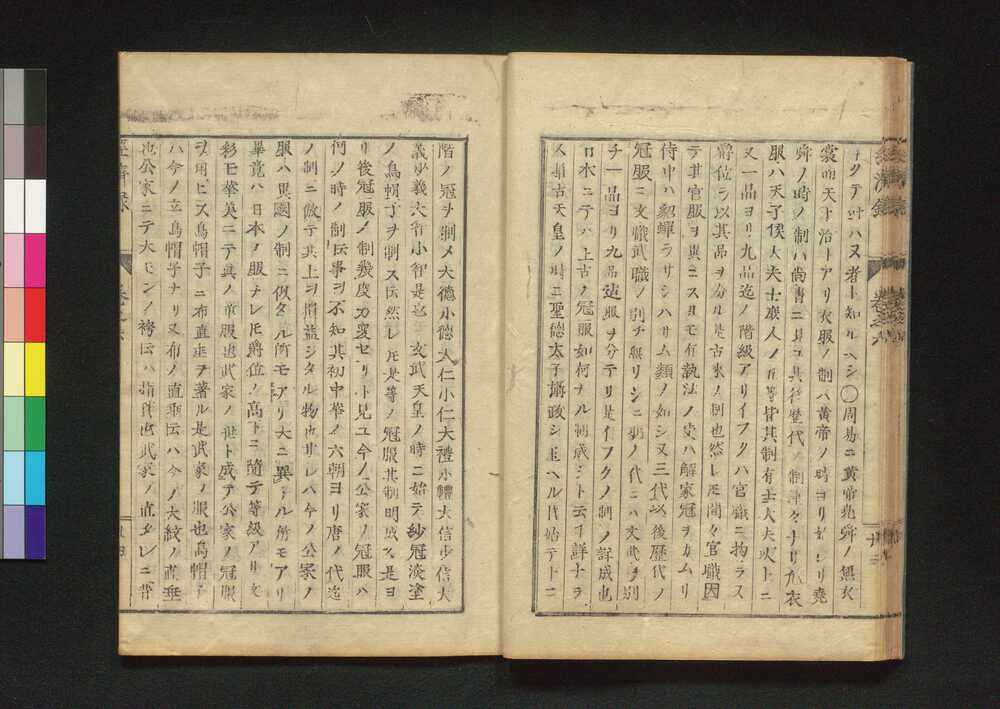 テ叶ハヌ者ト知ルヘシ〇周易ニ黄帝堯舜ノ無衣
裳而天下治トアリ衣服ノ制ハ黄帝ノ時ヨリ始シリ堯
舜ノ時ノ制ハ尚書ニ見ユ其後歴代ノ制凖々ナリ凡衣
服ハ天子侯大夫士庶人ノ五等皆其制有士大夫以上ニ
又一品ヨリ九品迄ノ階級アリイフクハ官職ニ拘ラス
爵位ヲ以其品ヲ分ル是古来ノ例也然レモ間々官職因
テ其官服ヲ異ニスルモ有執法ノ吏ハ解冢冠ヲカムリ
侍中ハ貂蟬ヲサシハサム類ノ如シ又三代以後歴代ノ
冠服ニ文職武職ノ別チ無リシニ明ノ代ニハ文武ヲ別
チ一品ヨリ九品迄服ヲ分テリ是イフクノ制ノ詳成也
日本ニテハ上古ノ冠服如何ナル制成シト云フ詳ナラ
ス推古天皇ノ時ニ聖徳太子摂政シ玉ヘル代始テ十二
階ノ冠ヲ制メ大德小德大仁小仁大禮小禮大信小信大
義小義大智小智是也文武天皇ノ時ニ始テ紗冠漆塗
ノ烏帽子ヲ制ス云然レモ是等ノ冠服其制明成ス是ヨ
リ後冠服ノ制幾度カ変セリト見ユ今ノ公家ノ冠服ハ
何ノ時ノ制云事ヲ不知其初中華ノ六朝ヨリ唐ノ代迄
ノ制ニ倣テ其上ヲ損益シタル物也サレハ今ノ公家ノ
服ハ異國ノ制ニ似タル所モアリ大ニ異ナル所モアリ
畢竟ハ日本ノ服ナレモ爵位ノ高下ニ隨テ等級アリ文
彩モ華美ニテ真ノ章服也武家ノ世ト成テ公家ノ冠服
ヲ用ヒス烏帽子ニ布直垂ヲ著ル是武家ノ服也烏帽子
ハ今ノ立烏帽子ナリ又布ノ直垂云ハ今ノ大紋ノ直垂
也公家ニテ大モンノ袴云ハ指貫也武家ノ直タレニ常